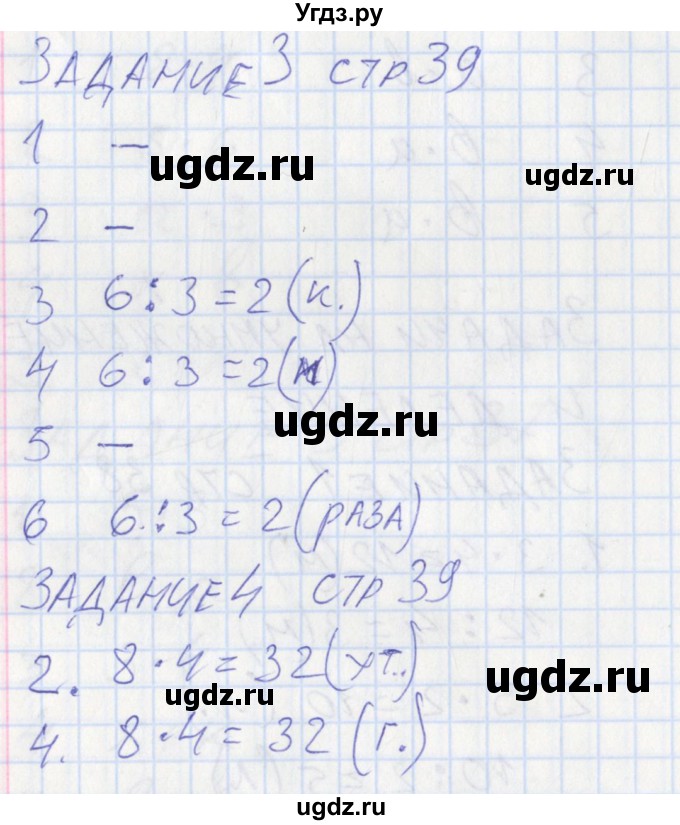 Угдз.ру
ЗАДАНИЕ 3 стр 39
1 –
ugdz.ru
ugdz.ru
2 –
3 6 : 3 = 2 (к.)
4 6 : 3 = 2 (м)
ugdz.ru
5 –
6 6 : 3 = 2 (РАЗА)
ЗАДАНИЕ 4 стр 39
2. 8 · 4 = 32 (хт.)
ugdz.ru
ugdz.ru
4. 8 · 4 = 32 (г.)
ugdz.ru